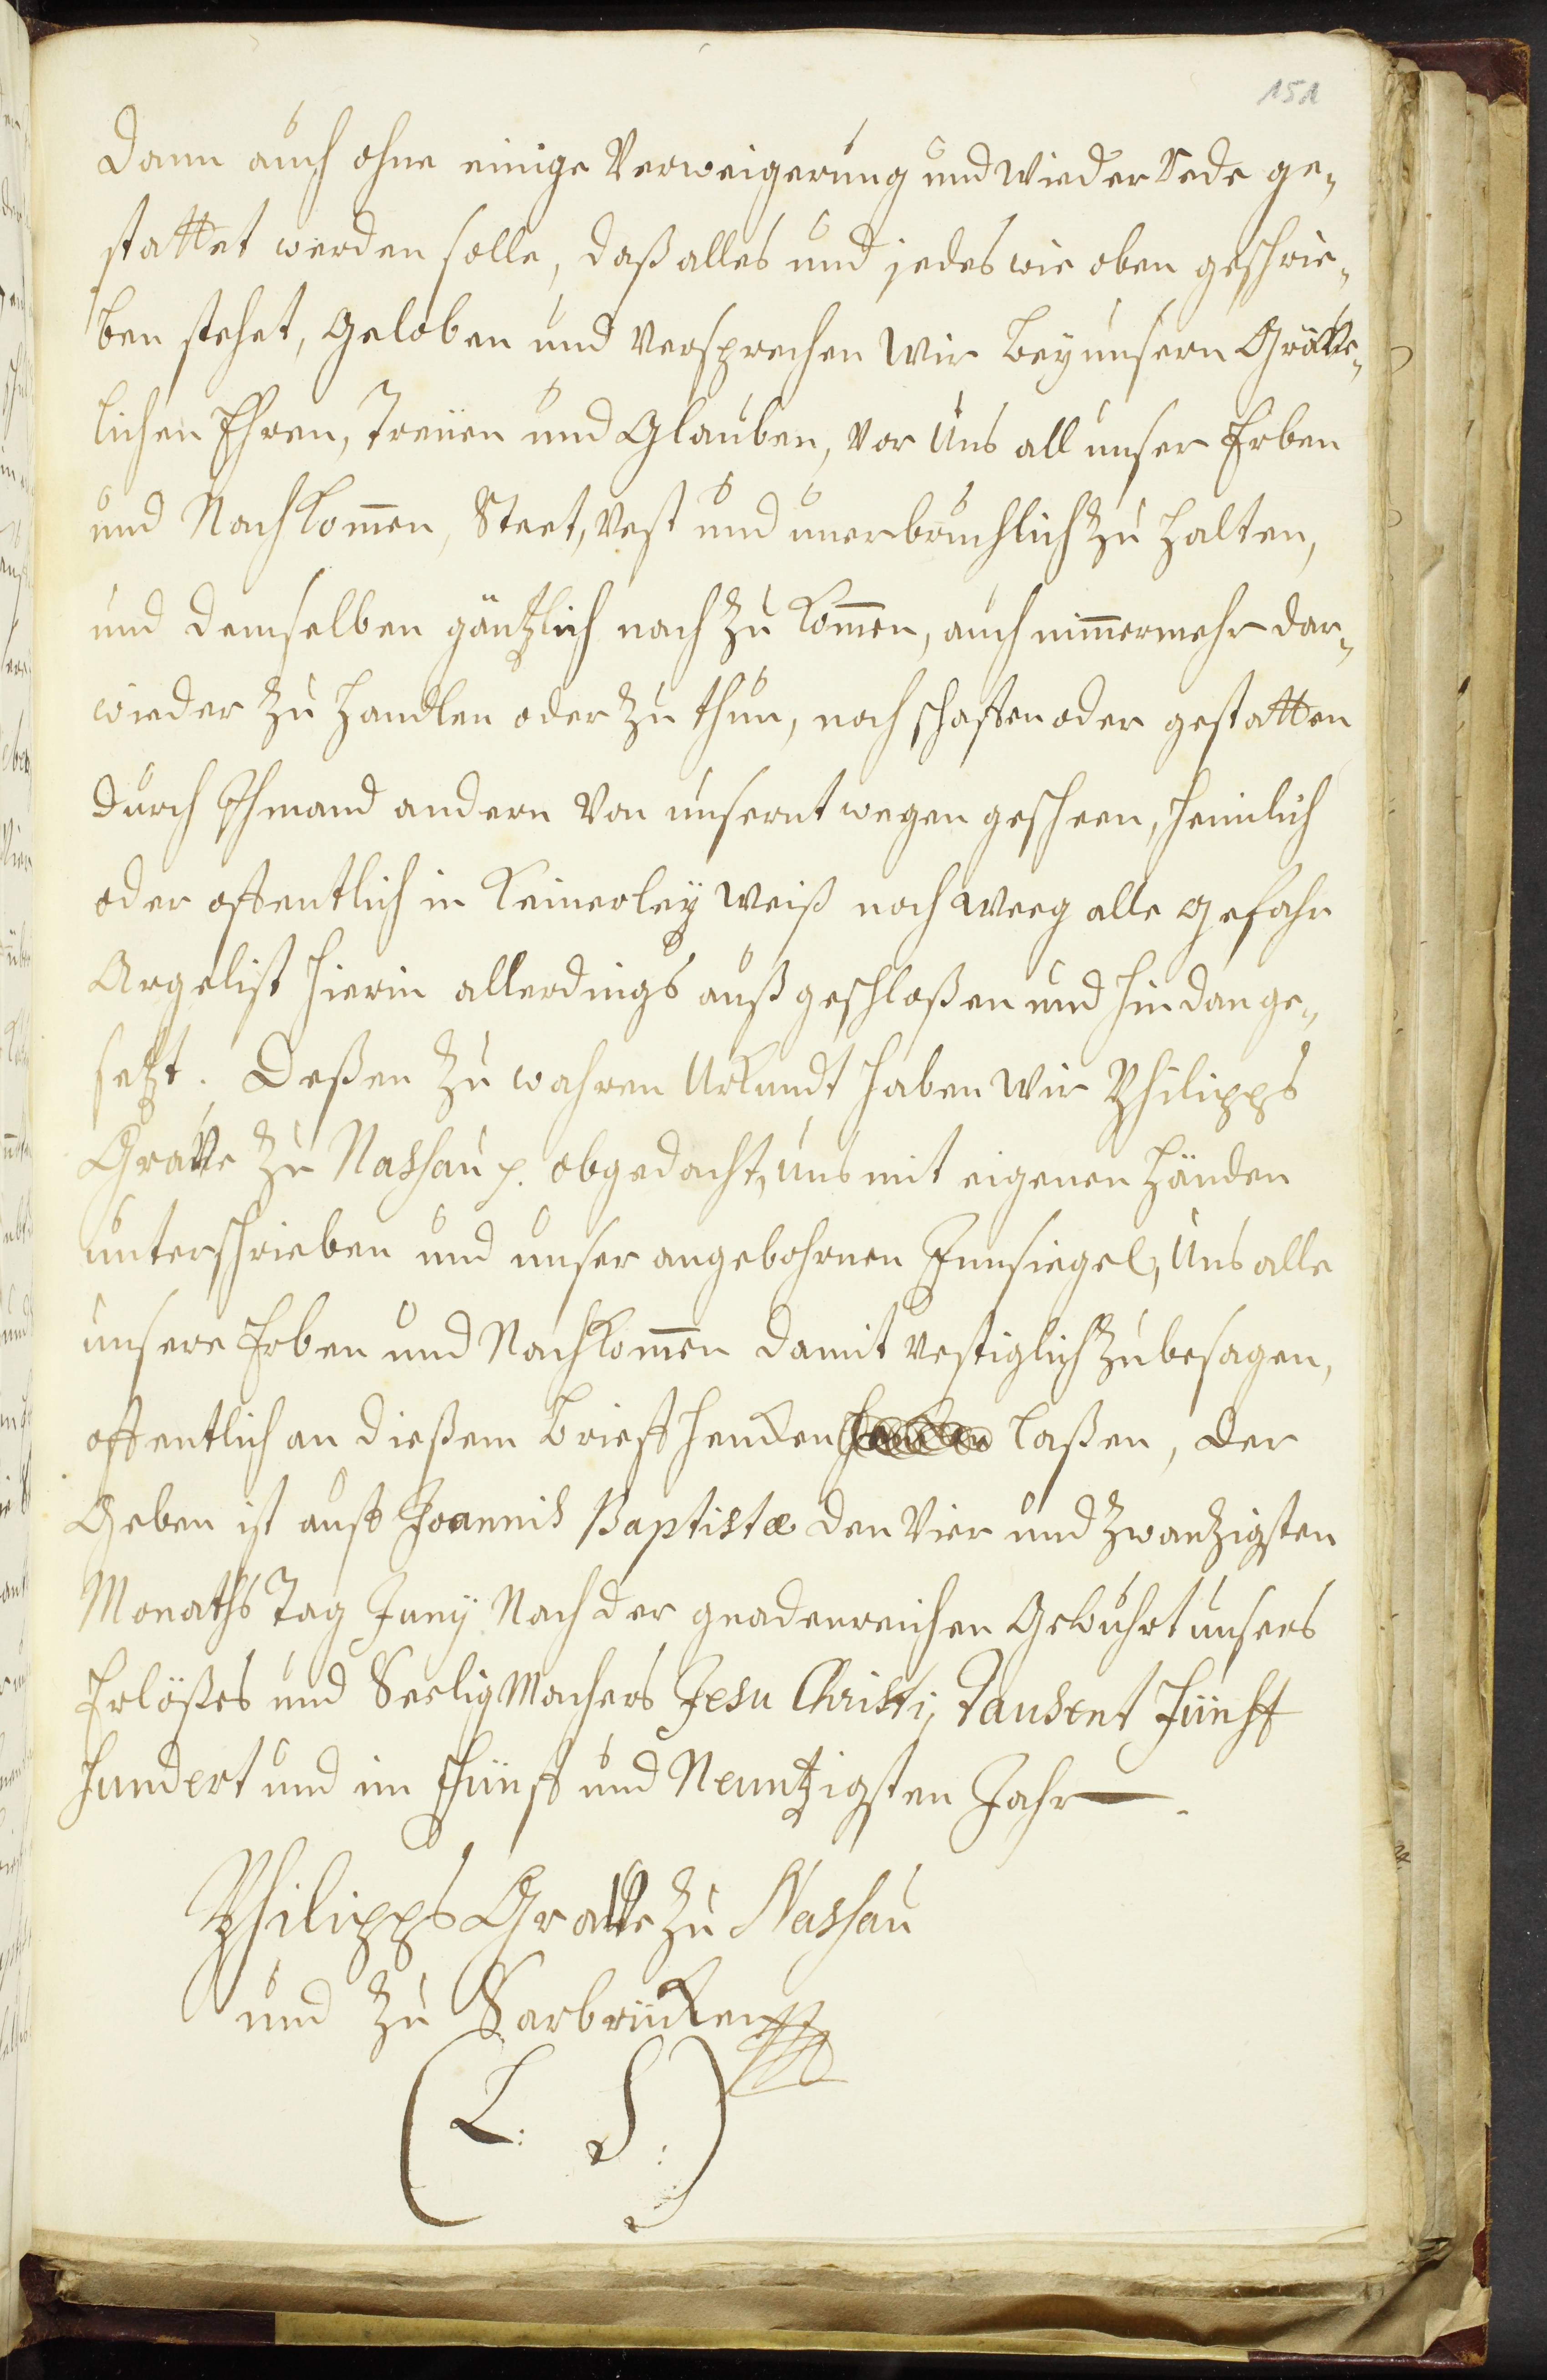 151
dann auch ohne einige Verweigerung und wieder Rede ge¬
stattet werden solle, daß alles und jedes wie oben geschrie¬
ben stehet, geloben und versprechen wir bey unsern Gräve¬
lichen Ehren, Treüen und Glauben, vor uns all unser Erben
und Nachkom̄en, Steet, vest und unverbrüchlich zu halten,
und demselben gäntzlich nach zu kom̄en, auch nim̄ermehr dar¬
wieder zu handlen oder zu thun, noch schaffen oder gestatten
durch Jhmand andern von unsernt wegen gescheen, heimlich
oder offentlich in keinerley weiß noch weeg alle gefahr
Argelist hierin allerdings außgeschloßen und hindange¬
setzt. Deßen zu wahren Urkundt haben wir Philipps
Grave zu Nassau p. obgedacht, uns mit eigenen Händen
unterschrieben und unser angebohrnen Innsiegel, uns alle
unsere Erben und Nachkom̄en damit vestiglich zu besagen,
offentlich an dießem brieff hencken laßen, der
Geben ist auff Joannis Baptistæ den vier und zwantzigsten
Monaths Tag Junÿ Nach der gnadenreichen Gebuhrt unsers
Erlößers und Seeligmachers Jesu Christi, Tausent Fünff
hundert und im Fünff und Neuntzigsten Jahr.
Philipps Grave zu Nassau
und zu Sarbrücken
(L. S.)